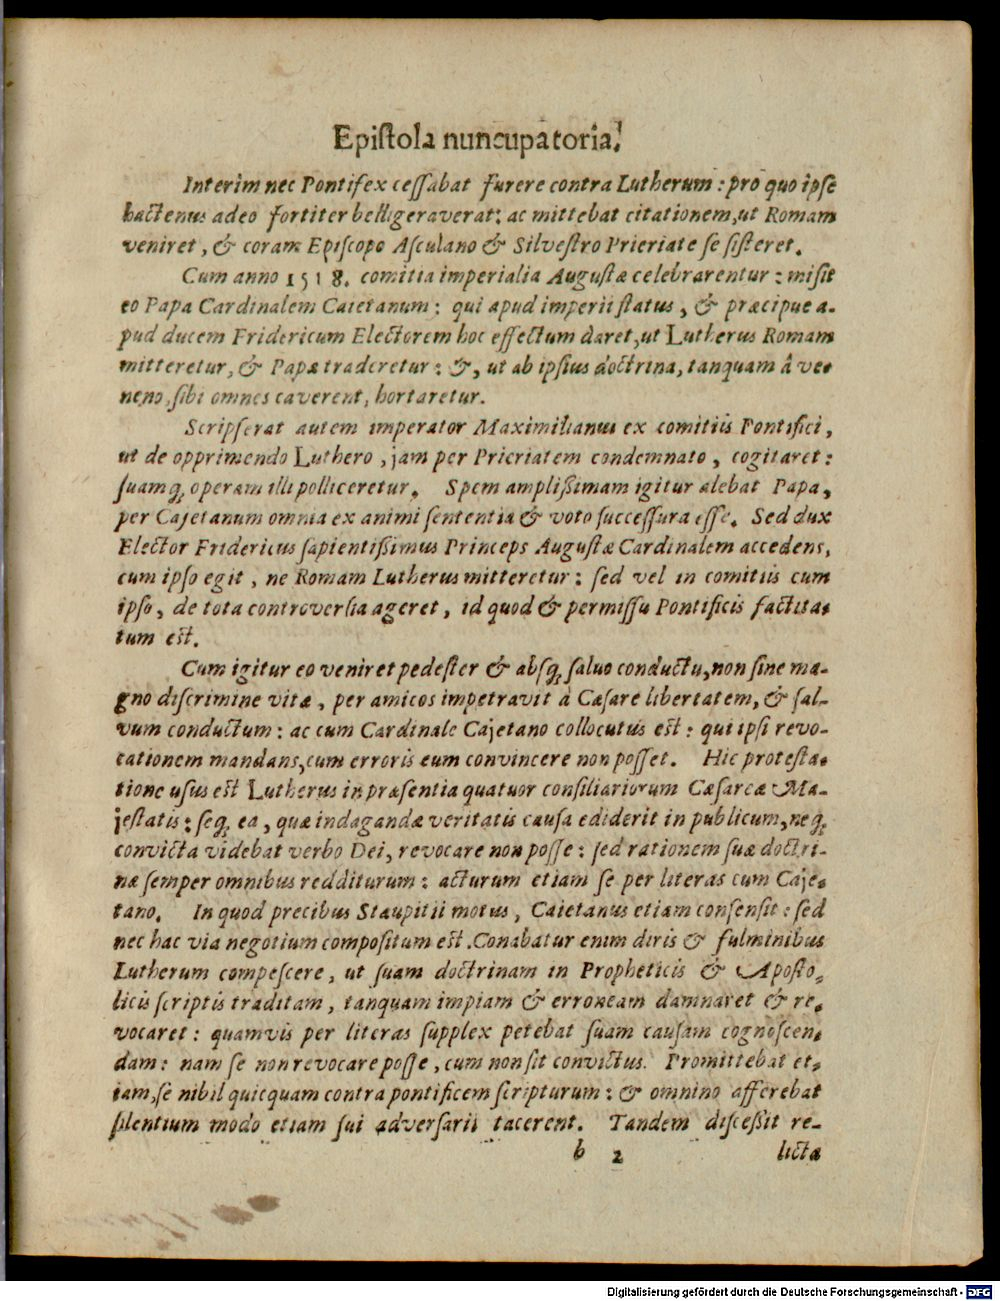 Epistola nuncupatoria.
Interim nec Pontifex cessabat furere contra Lutherum : pro quo ipse
hactenus adeo fortiter belligeraverat: ac mittebat citationem, ut Romam
veniret, & coram Episcopo Asculano & Silvestro Prieriate se sisteret.
Cum anno 1518. comitia imperialia Augustæ celebrarentur : misit
eo Papa Cardinalem Caietanum: qui apud imperii status, & præcipue a-
pud ducem Fridericum Electorem hoc effectum daret, ut Lutherus Romam
mitteretur, & Papæ traderetur: &, ut ab ipsius doctrina, tanquam â ve-
neno, sibi omnes caverent, hortaretur.
Scripserat autem imperator Maximilianus ex comitiis Pontifici,
ut de opprimendo Luthero, jam per Prieriatem condemnato, cogitaret:
suamq́; operam illi polliceretur. Spem amplißimam igitur alebat Papa,
per Cajetanum omnia ex animi sententia & voto successura esse. Sed dux
Elector Fridericus sapientißimus Princeps Augustæ Cardinalem accedens,
cum ipso egit, ne Romam Lutherus mitteretur: sed vel in comitiis cum
ipso, de tota controversia ageret, id quod & permissu Pontificis factita-
tum est.
Cum igitur eo veniret pedester & absq́; salvo conductu, non sine ma-
gno discrimine vitæ, per amicos impetravit à Cæsare libertatem, & sal-
vum conductum: ac cum Cardinale Cajetano collocutus est: qui ipsi revo-
cationem mandans, cum erroris eum convincere non posset. Hic protesta-
tione usus est Lutherus in præsentia quatuor consiliariorum Cæsareæ Ma-
jestatis: seq́; ea, quæ indagandæ veritatis causa ediderit in publicum, neq́;
convicta videbat verbo Dei, revocare non posse: sed rationem suæ doctri-
næ semper omnibus redditurum: acturum etiam se per literas cum Caje-
tano. In quod precibus Staupitii motus, Caietanus etiam consensit: sed
nec hac via negotium compositum est. Conabatur enim diris & fulminibus
Lutherum compescere, ut suam doctrinam in Propheticis & Aposto-
licis scriptis traditam, tanquam impiam & erroneam damnaret & re-
vocaret: quamvis per literas supplex petebat suam causam cognoscen-
dam: nam se non revocare posse, cum non sit convictus. Promittebat et-
iam, se nihil quicquam contra pontificem scripturum: & omnino afferebat
silentium modo etiam sui adversarii tacerent. Tandem disceßit re-
b 2 lictæ
Digitalisierung gefördert durch die Deutsche Forschungsgemeinschaft - DFG